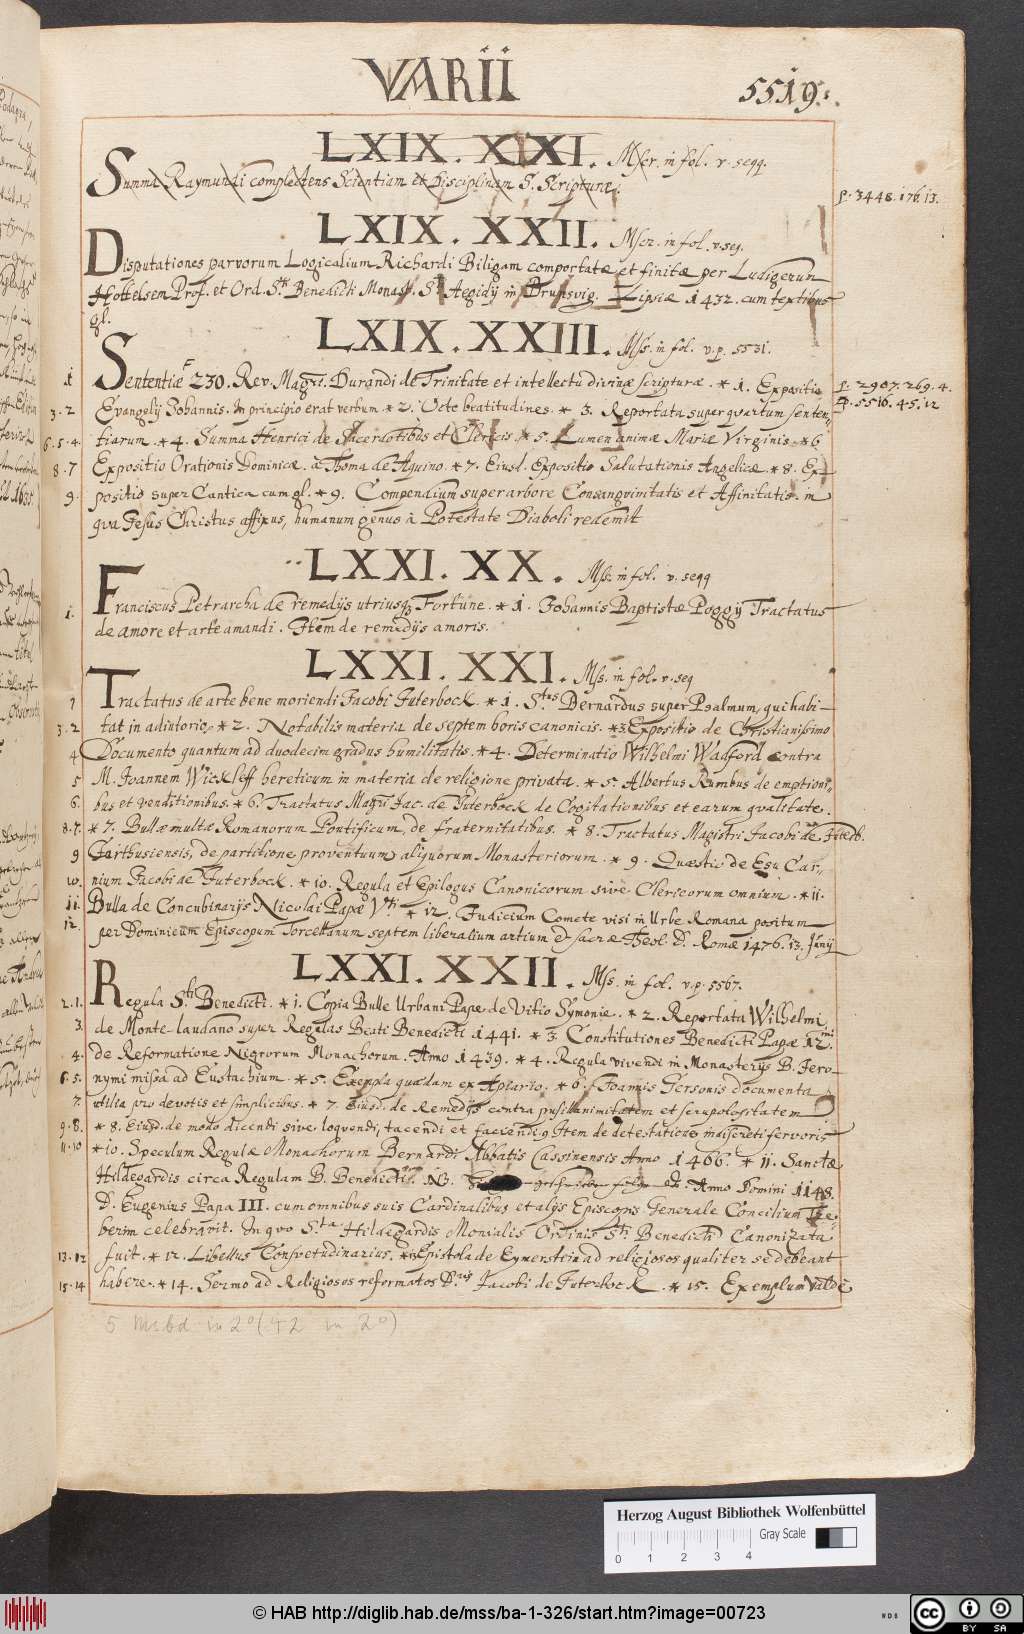 VARII
5519.
LXIX. XXI. Mscr. in fol. v. seqq.
Summa Raymundi complectens Scientiam et Disciplinam S. Scripturæ.
p. 3448. 176. 13.
LXIX. XXII. Mscr. in fol. v. seq.
Disputationes parvorum Logicalium Richardi Biligam comportatæ et finitæ per Ludigerum
Hottelsem Prof. et Ord. Sti Benedicti Monast. Sti Aegidij in Brunsvig. Lipsiæ 1432. cum textibus
gl.
LXIX. XXIII. Mss. in fol. v. p. 5531.
1 Sententiæ 230. Rev. Magri. Durandi de Trinitate et intellectu divinæ scripturæ. * 1. Expositio
p. 2907. 269. 4.
3. 2 Evangelij Johannis. In principio erat verbum * 2. Octo beatitudines. * 3. Reportata super quartum senten-
p. 5516. 45. 12
6. 5. 4. tiarum. * 4. Summa Henrici de Sacerdotibus et Clericis. * 5. Lumen animæ Mariæ Virginis. * 6.
8. 7 Expositio Orationis Dominicæ. à Thoma de Aquino. * 7. Eiusd. Expositio Salutationis Angelicæ. * 8. Ex-
9. positio super Cantica cum gl. * 9. Compendium super arbore Consangvinitatis et Affinitatis. in
qva Jesus Christus affixus, humanum genus à Potestate Diaboli redemit
LXXI. XX. Mss. in fol. v. seqq
Franciscus Petrarcha de remedijs utriusq; Fortunæ. * 1. Johannis Baptistæ Poggij Tractatus
1. de amore et arte amandi. Item de remedijs amoris.
LXXI. XXI. Mss. in fol. v. seq
1 Tractatus de arte bene moriendi Jacobi Juterbock. * 1. Stus Bernardus super Psalmum, qui habi-
3. 2 tat in adiutorio, * 2. Notabilis materia de septem horis canonicis. * 3. Expositio de Christianissimo
4 Documento quantum ad duodecim gradus humilitatis. * 4. Determinatio Wilhelmi Wadford contra
5 M. Joannem Wickleff hereticum in materia de religione privata. * 5. Albertus Rumbus de emptioni-
6. bus et venditionibus. * 6. Tractatus Magri Jac. de Juterbock de Cogitationibus et earum qvalitate.
8. 7. * 7. Bullæ multæ Romanorum Pontificum, de fraternitatibus. * 8. Tractatus Magistri Jacobi de Juterb.
9 Carthusiensis, de partitione proventuum aliquorum Monasteriorum. * 9. Quæstio de Esu Car-
10. nium Jacobi de Juterbock. * 10. Regula et Epilogus Canonicorum sive Clericorum omnium. * 11.
11. Bulla de Concubinarijs Nicolai Papæ Vti * 12. Judicium Comete visi in Urbe Romana positum
12. per Dominicum Episcopum Torcellanum septem liberalium artium et sacræ Theol. D. Romæ 1476. 13. Junij
LXXI. XXII. Mss. in fol. v. p. 5567.
2. 1. Regula Sti Benedicti. * 1. Copia Bulle Urbani Papæ de Vitio Symoniæ. * 2. Reportata Wilhelmi
3. de Monte laudano super Regulas Beati Benedicti 1441. * 3. Constitutiones Benedicti Papæ 12mi
4. de Reformatione Nigrorum Monachorum. Anno 1439. * 4. Regula vivendi in Monasterijs B. Jero-
6. 5. nymi missa ad Eustachium. * 5. Exempla quædam ex Apiario. * 6. Joannis Gersonis documenta
7. utilia pro devotis et simplicibus. * 7. Eiusd. de Remedijs contra pusillanimitatem et scrupolositatem
9. 8. * 8. Eiusd. de modo dicendi sive loqvendi, tacendi et faciendi. 9 Item de detestatione indiscreti fervoris
11. 10 * 10. Speculum Regulæ Monachorum Bernardi Abbatis Cassinensis Anno 1466. * 11. Sanctæ
Hildegardis circa Regulam B. Benedicti. NB. Anno Domini 1148.
D. Eugenius Papa III. cum omnibus suis Cardinalibus et alijs Episcopis Generale Concilium Tre-
berim celebravit. In qvo Sta Hildegardis Monialis Ordinis Sti Benedicti Canonizata
13. 12 fuit. * 12. Libellus Consvetudinarius. * 13 Epistola de Eymerstein ad religiosos qualiter se debeant
15. 14 habere. * 14. Sermo ad Religiosos reformatos Dris Jacobi de Juterbock. * 15. Exemplum valdè
5 Msbd in 2° (42 in 2°)
Herzog August Bibliothek Wolfenbüttel
0 1 2 3 4
Gray Scale
© HAB http://diglib.hab.de/mss/ba-1-326/start.htm?image=00723
cc BY SA